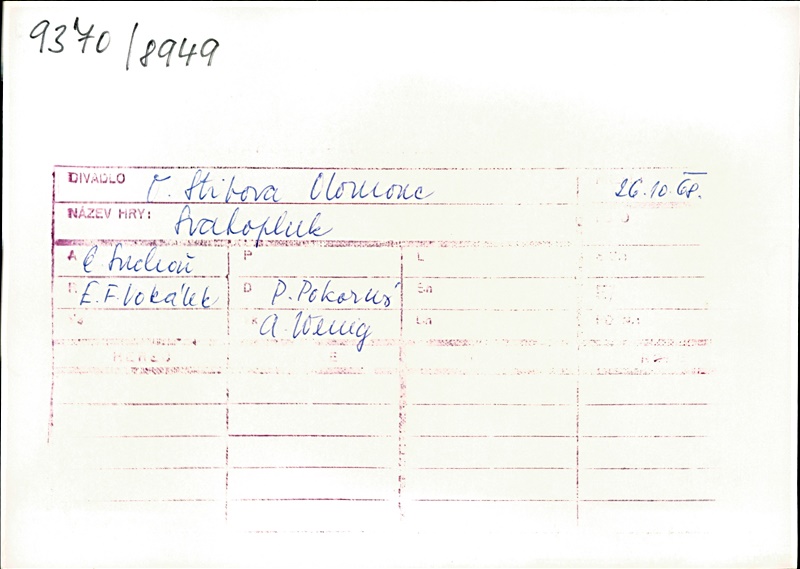 9370/8949
DIVADLO O. Stibora Olomouc 26.10.68.
NÁZEV HRY: Svatopluk
A E. Suchoň P L
R E.F. Vokálek D P. Pokorný Šn
K A. Wenig Ln
HEREC